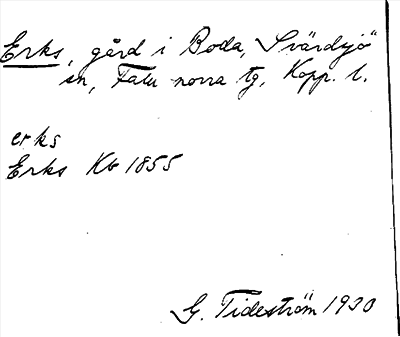 Erks, gård i Boda, Svärdsjö
sn, Falu norra tg, Kopp. l.
erks
Erks Kb 1855
G. Tideström 1930